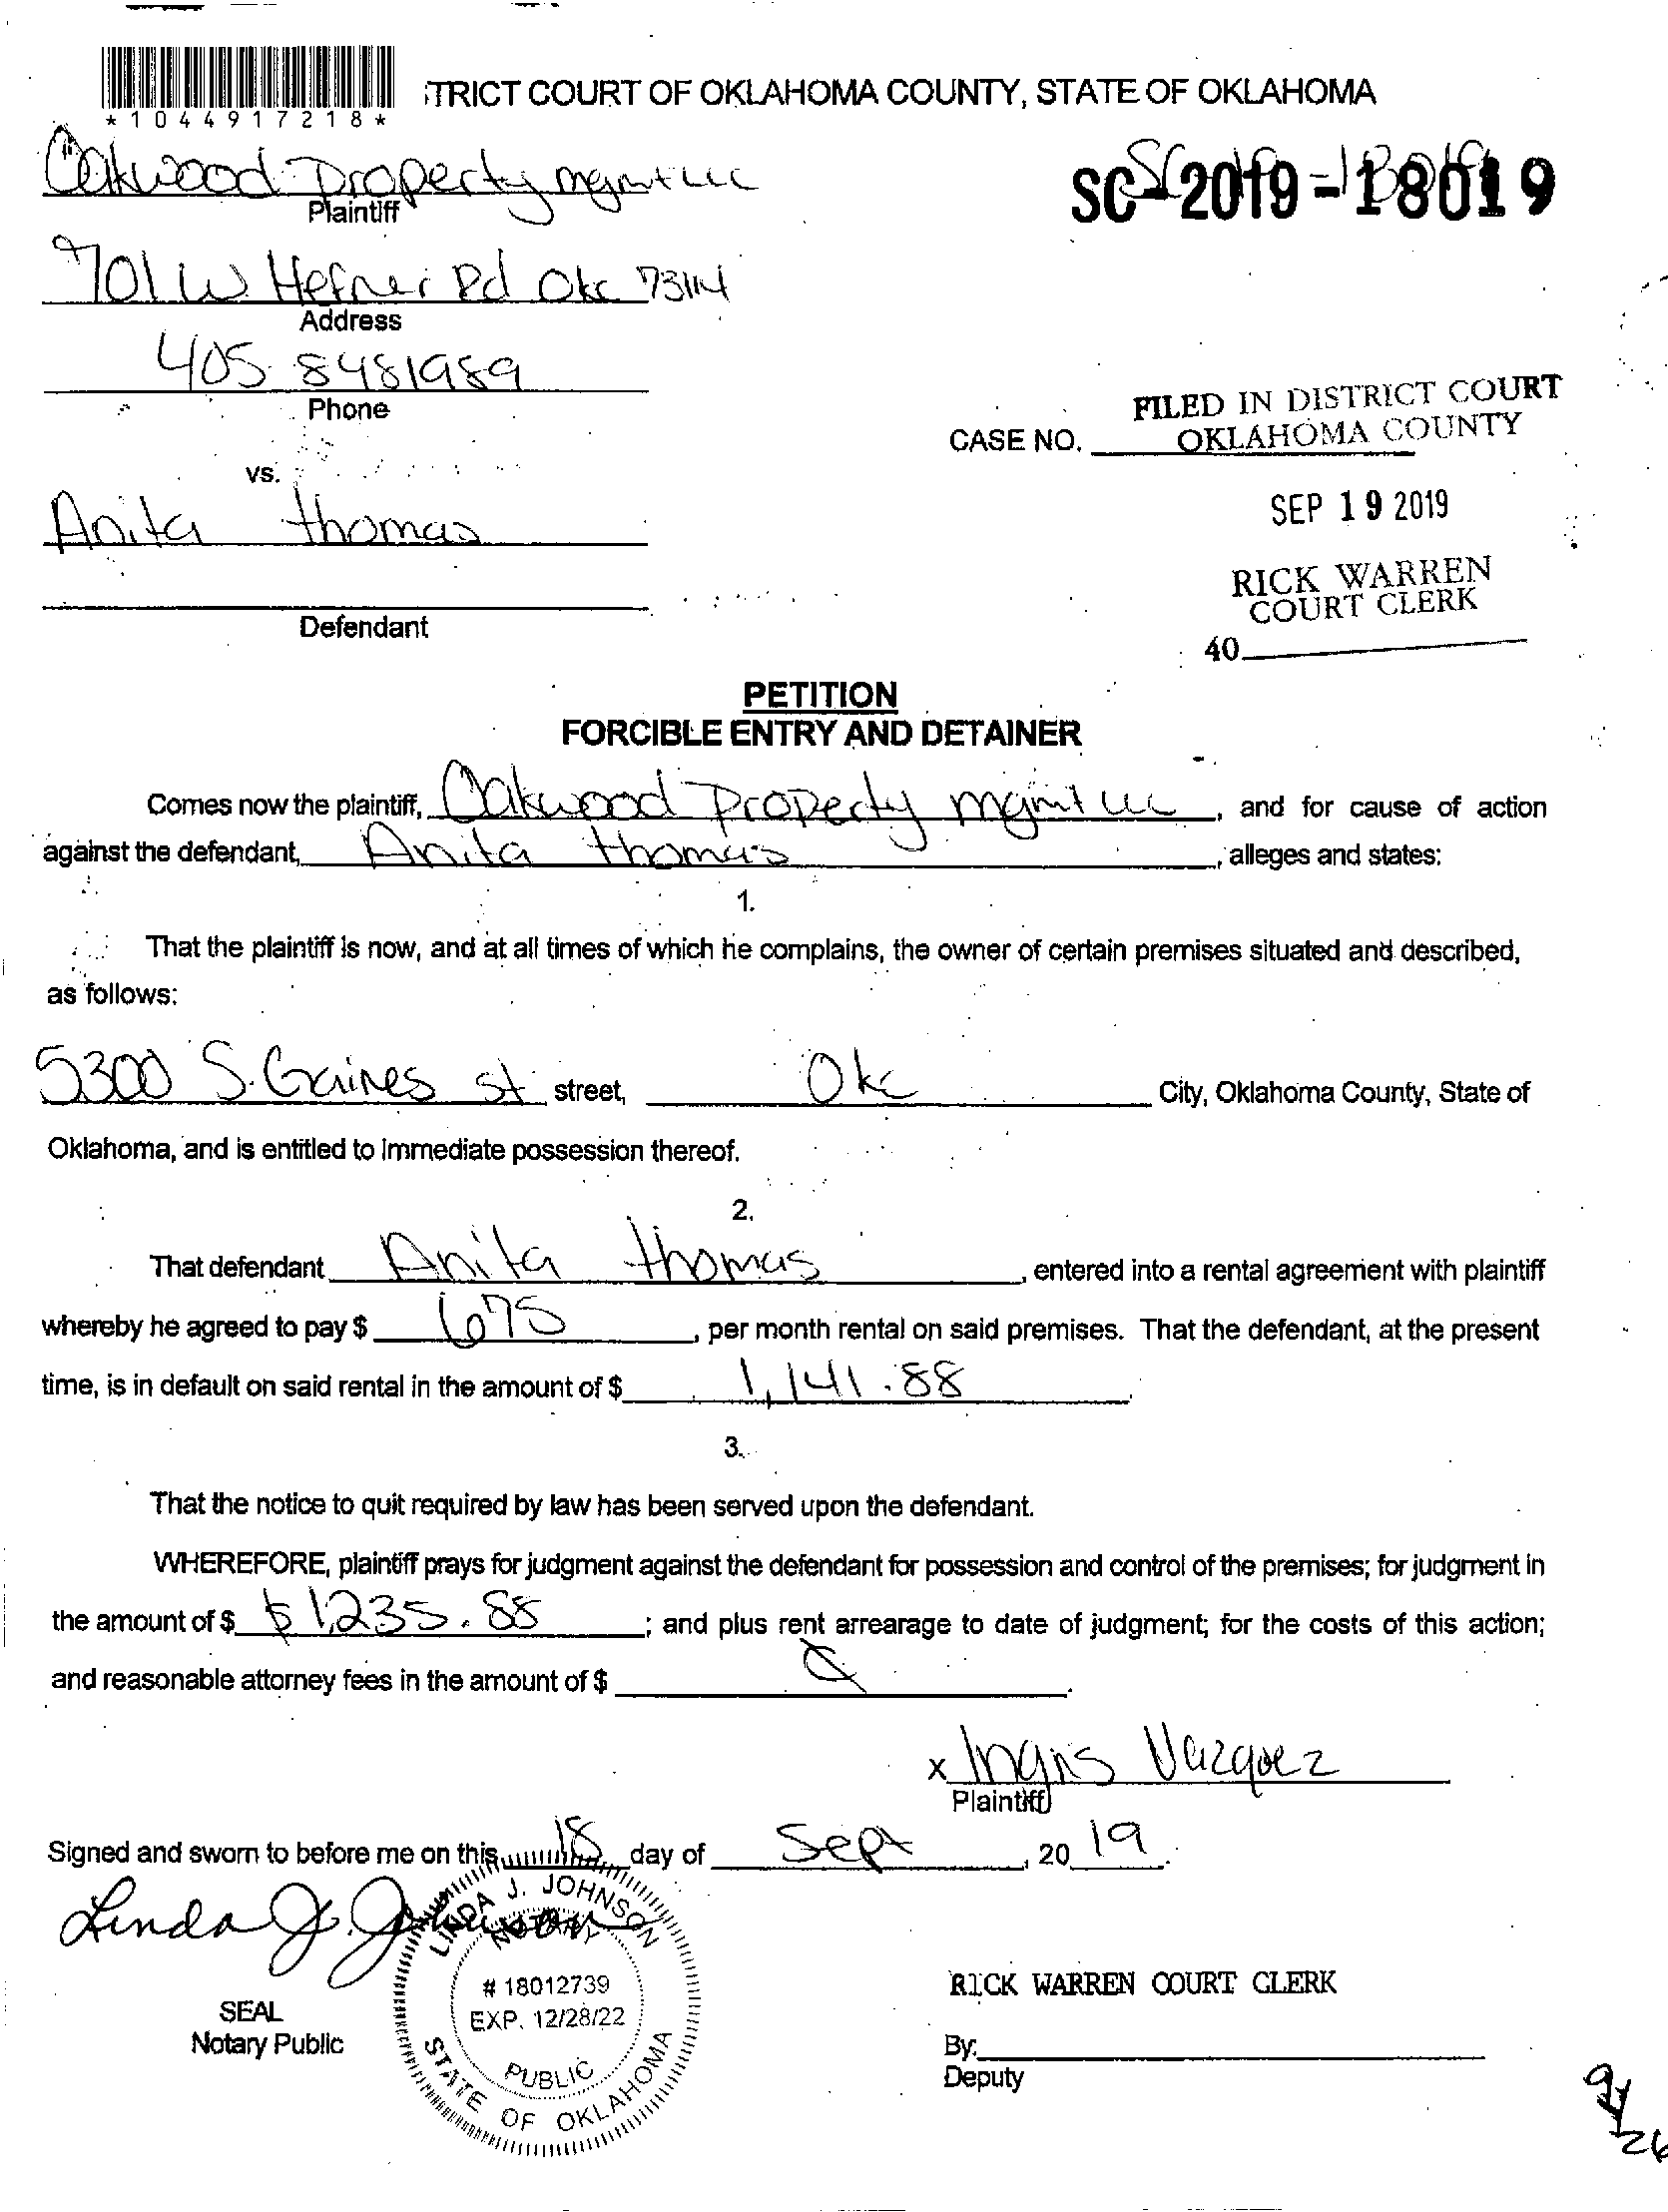 TRICT COURT OF OKLAHOMA COUNTY, STATE OF OKLAHOMA
*1044917218*
Oakwood Property mgmt LLC
Plaintiff
SC-2019-18019
701 W. Hefner Rd Okc 73114
Address
405 8481989
Phone
FILED IN DISTRICT COURT
CASE NO. OKLAHOMA COUNTY
vs.
SEP 19 2019
Anita thomas
RICK WARREN
COURT CLERK
Defendant
40
PETITION
FORCIBLE ENTRY AND DETAINER
Comes now the plaintiff, Oakwood Property mgmt LLC, and for cause of action
against the defendant, Anita thomas, alleges and states:
1.
That the plaintiff is now, and at all times of which he complains, the owner of certain premises situated and described,
as follows:
5300 S. Gaines st street, Okc City, Oklahoma County, State of
Oklahoma, and is entitled to immediate possession thereof.
2.
That defendant Anita thomas, entered into a rental agreement with plaintiff
whereby he agreed to pay $ 675, per month rental on said premises. That the defendant, at the present
time, is in default on said rental in the amount of $ 1,141.88.
3.
That the notice to quit required by law has been served upon the defendant.
WHEREFORE, plaintiff prays for judgment against the defendant for possession and control of the premises; for judgment in
the amount of $ $1,235.88; and plus rent arrearage to date of judgment; for the costs of this action;
and reasonable attorney fees in the amount of $
x Ingris Vazquez
Plaintiff
Signed and sworn to before me on this 18 day of Sept, 2019.
Linda J. Johnson
LINDA J. JOHNSON
NOTARY
# 18012739
EXP. 12/28/22
PUBLIC
STATE OF OKLAHOMA
SEAL
Notary Public
RICK WARREN COURT CLERK
By:
Deputy
9/26